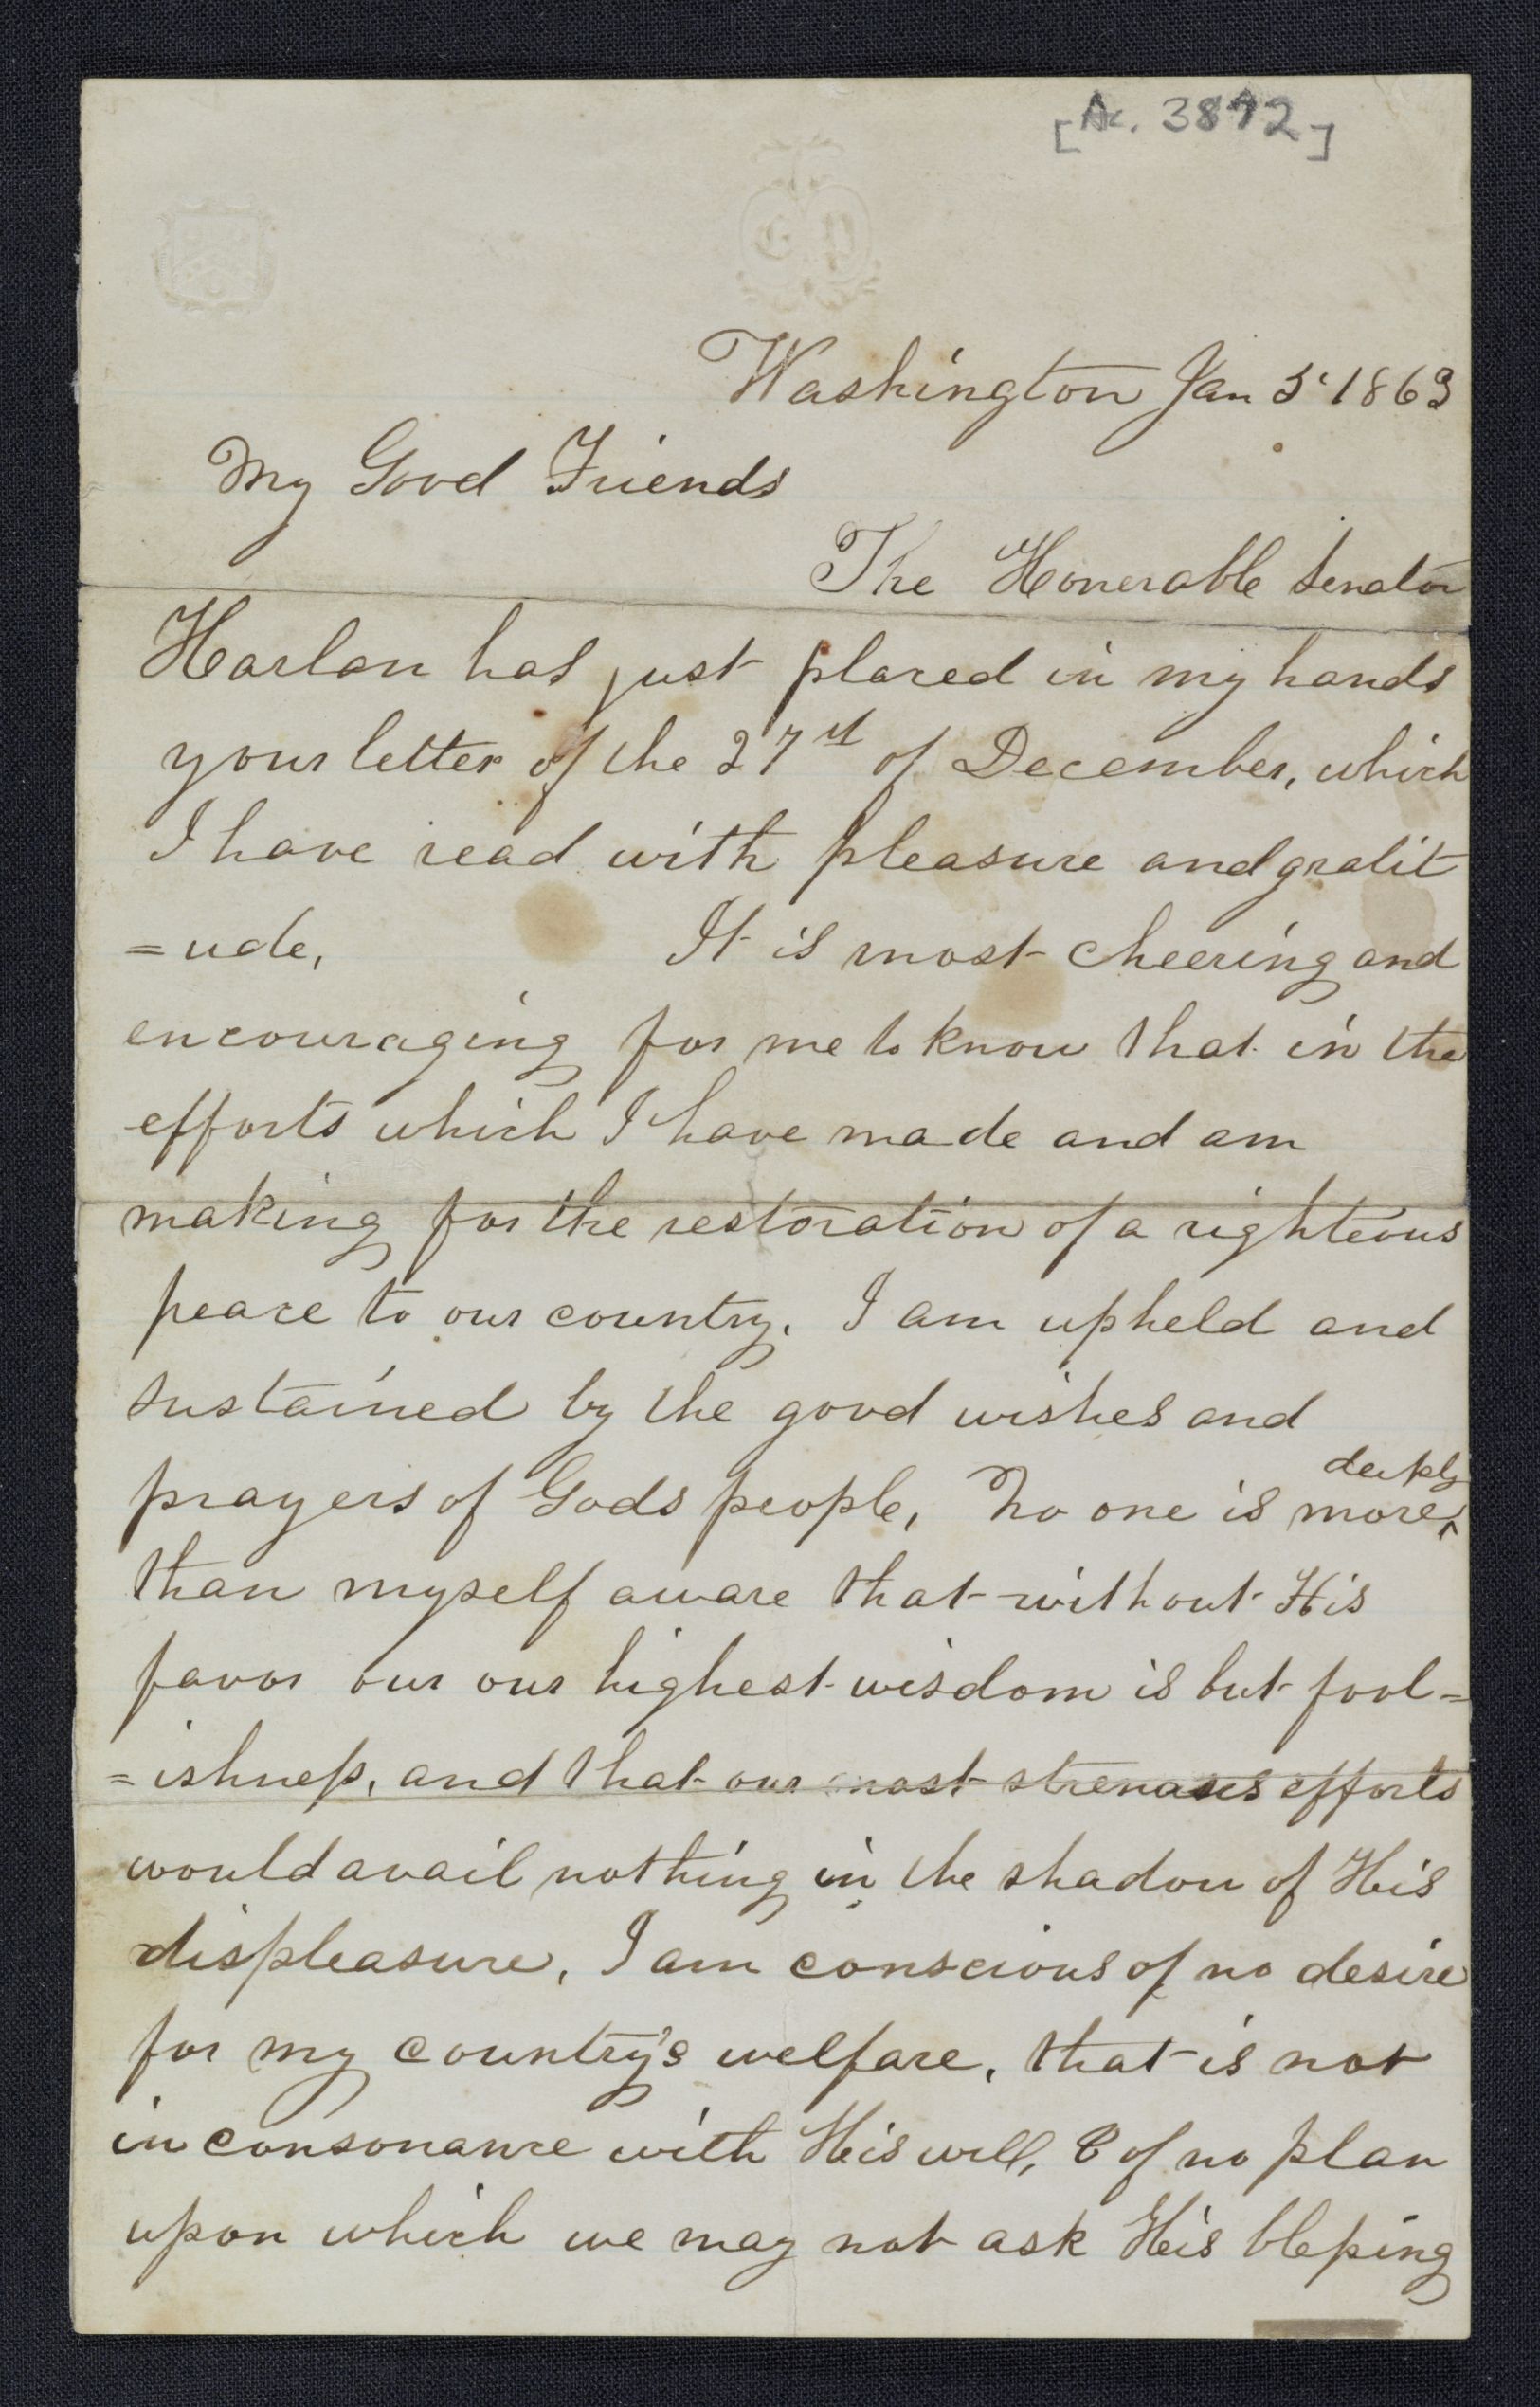 [Ac. 3892]
G P
Washington Jan 5' 1863
My Good Friends
The Honerable Senator
Harlan has just placed in my hands
your letter of the 27st of December, which
I have read with pleasure and gratit
=ude,    It is most cheering and
encouraging for me to know that in the
efforts which I have made and am
making for the restoration of a righteous
peace to our country. I am upheld and
sustained by the good wishes and
prayers of Gods people, No one is more ^deeply
than myself aware that without His
favor our our highest wisdom is but fool=
=ishness, and that our most strenuous efforts
would avail nothing in the shadow of His
displeasure, I am conscious of no desire
for my country's welfare, that is not
in consonance with His will, & of no plan
upon which we may not ask His blessing